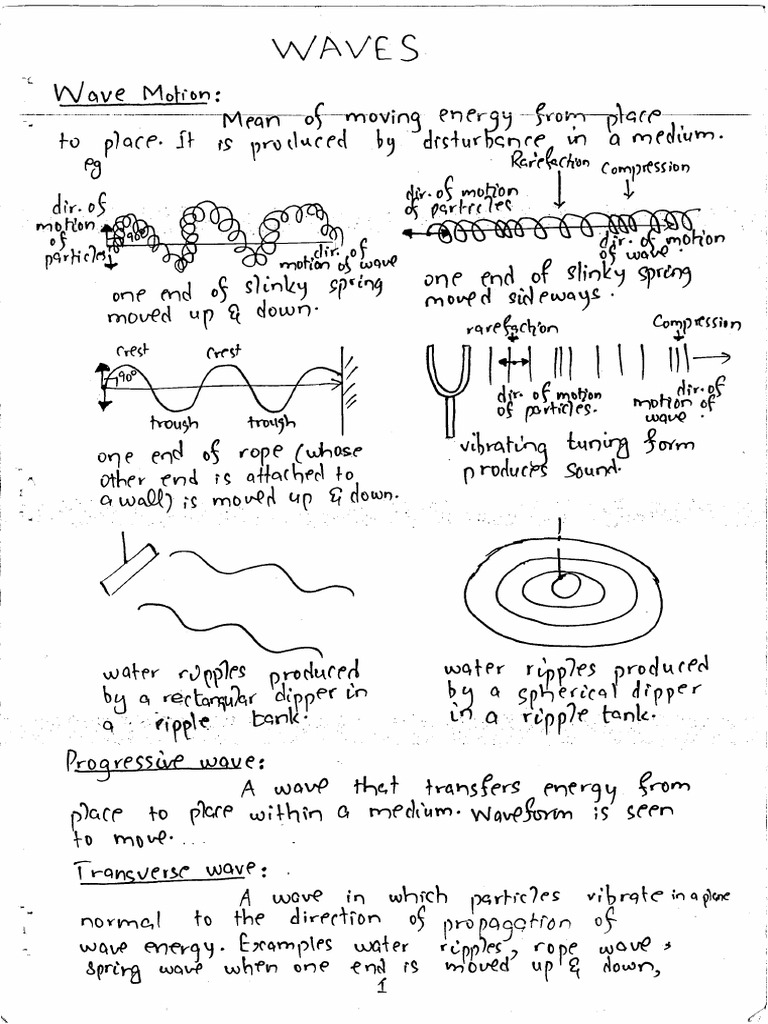 WAVES
Wave Motion:
Mean of moving energy from place
to place. It is produced by disturbance in a medium.
eg
Rarefaction
Compression
dir. of
motion
of
particles
90°
dir. of
motion of wave
one end of slinky spring
moved up & down.
dir. of motion
of particles
dir. of motion
of wave
one end of slinky spring
moved sideways.
crest
crest
90°
trough
trough
one end of rope (whose
other end is attached to
a wall) is moved up & down.
rarefaction
Compression
dir. of motion
of particles.
dir. of
motion of
wave.
vibrating tuning form
produces sound.
water ripples produced
by a rectangular dipper in
a ripple tank.
water ripples produced
by a spherical dipper
in a ripple tank.
Progressive wave:
A wave that transfers energy from
place to place within a medium. Waveform is seen
to move...
Transverse wave:
A wave in which particles vibrate in a plane
normal to the direction of propagation of
wave energy. Examples water ripples, rope wave,
spring wave when one end is moved up & down,
1